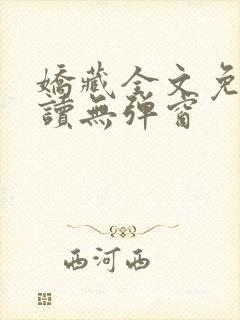 嬌藏全文免
讀無彈窗
西河西